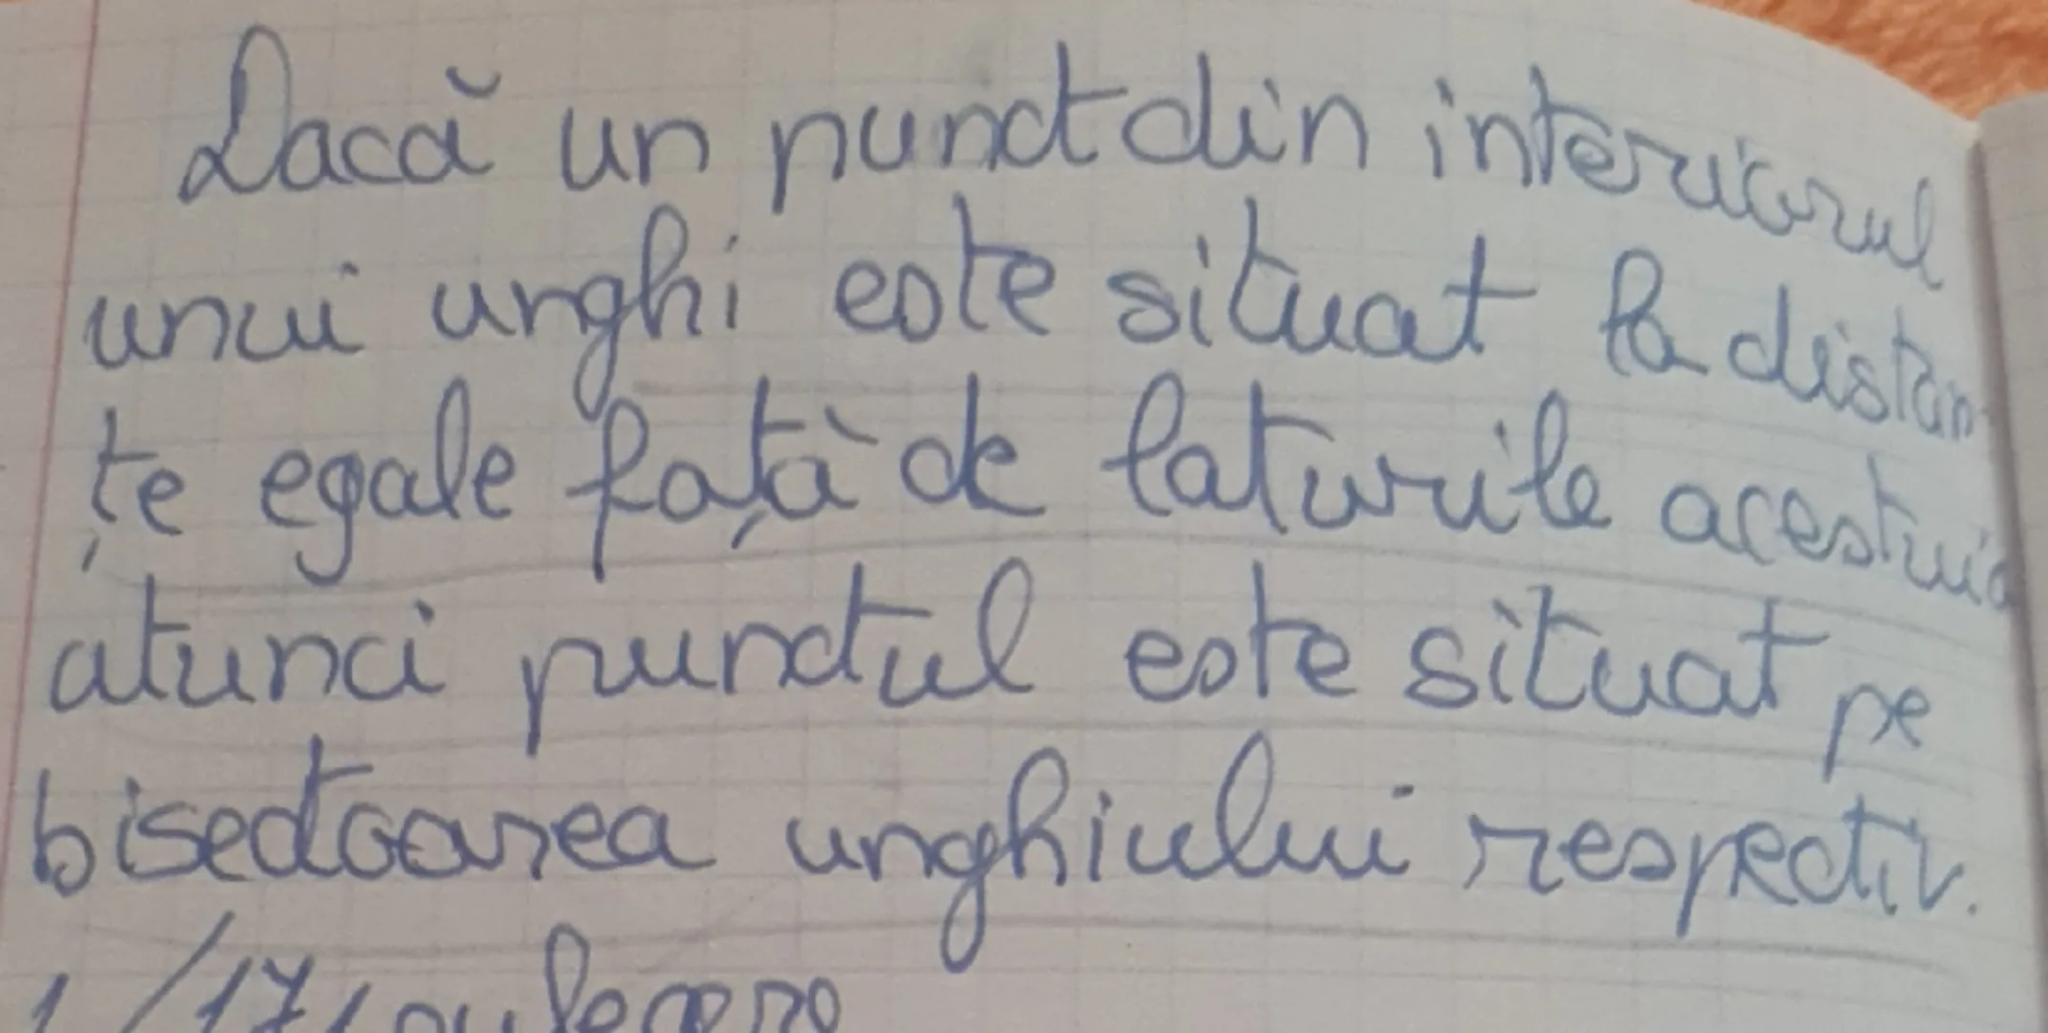 Dacă un punct din interiorul
unui unghi este situat la distan
țe egale față de laturile acestuia
atunci punctul este situat pe
bisectoarea unghiului respectiv.
1/171 culegere